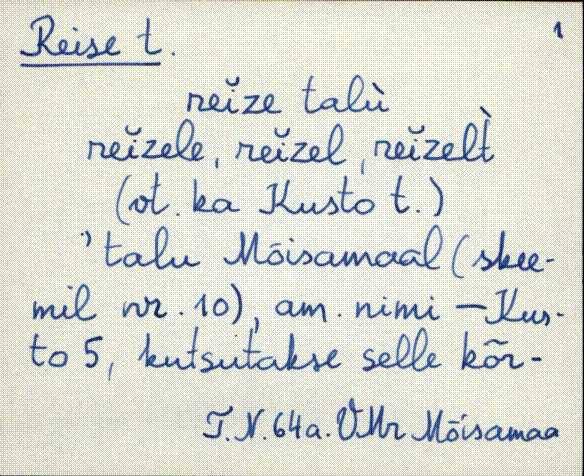 Reise t. 1
reĭze talù
reĭzele, reĭzel, reĭzelt̀
(vt. ka Kusto t.)
' talu Mõisamaal (skee-
mil nr. 10), am. nimi – Kus-
to 5, kutsutakse selle kõr-
T.N. 64a. VMr Mõisamaa